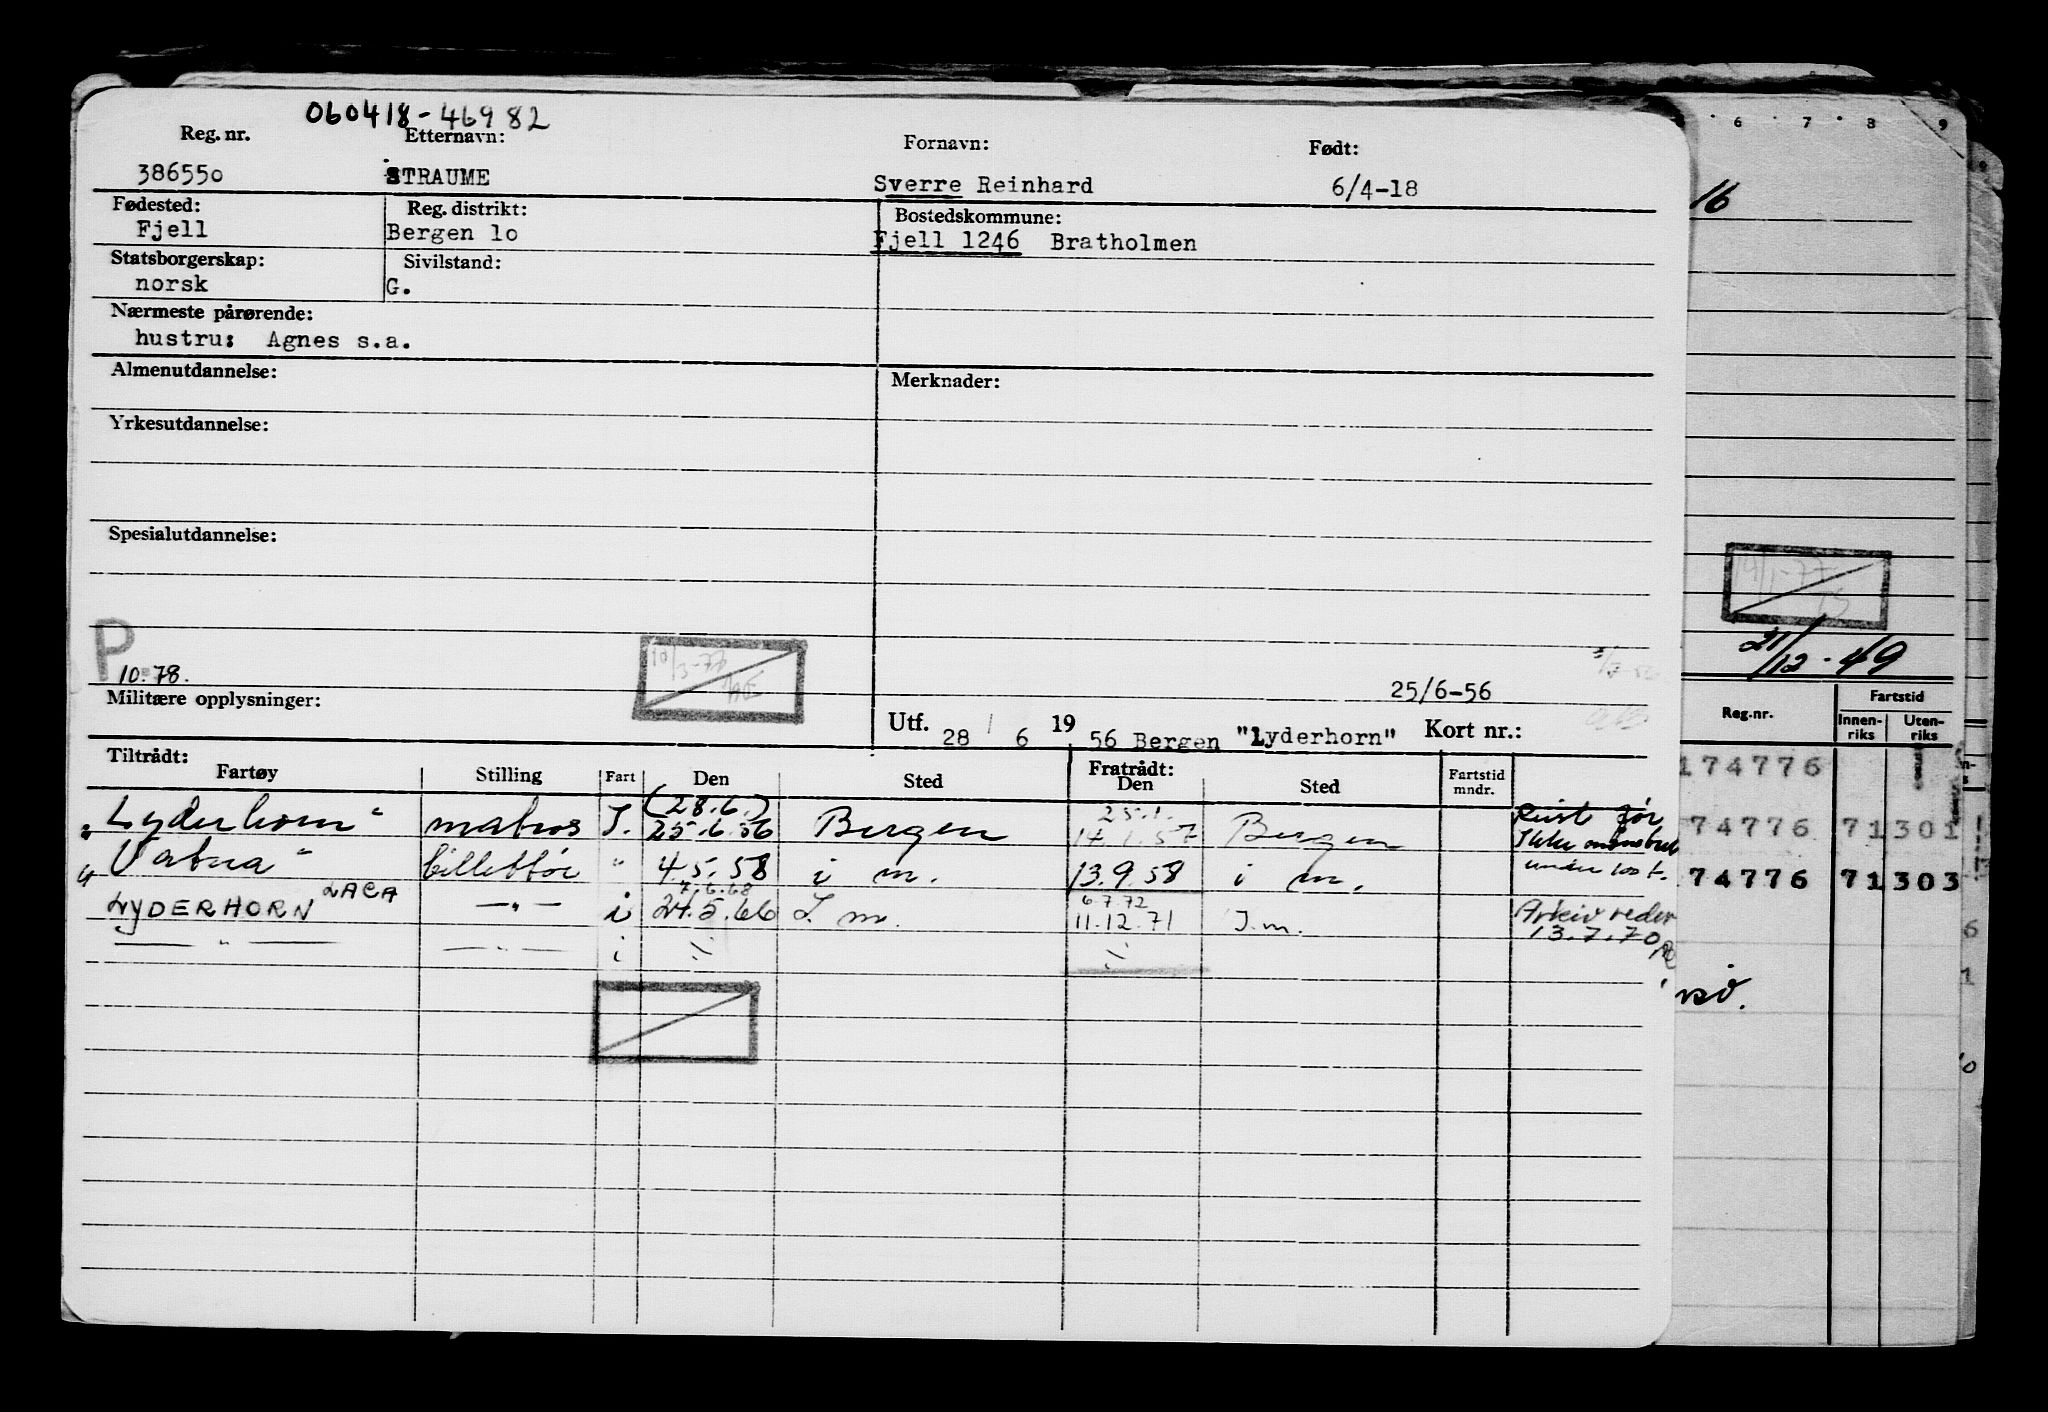 060418-46982
Reg. nr. Etternavn: Fornavn: Født:
386550 STRAUME Sverre Reinhard 6/4-18
Fødested: Reg. distrikt: Bostedskommune:
Fjell Bergen lo Fjell 1246 Bratholmen
Statsborgerskap: Sivilstand:
norsk G.
Nærmeste pårørende:
hustru: Agnes s.a.
Almenutdannelse: Merknader:
Yrkesutdannelse:
Spesialutdannelse:
P
10.78.
25/6-56
Militære opplysninger:
Utf. 28 / 6 19 56 Bergen "Lyderhorn" Kort nr.:
Tiltrådt: Fratrådt:
Fartøy Stilling Fart Den Sted Den Sted Fartstid mndr.
(28.6.) 25.1.
"Lyderhorn" matros I. 25.6.56 Bergen 14.1.57 Bergen
Ikke mønstret
"Vatna" billettør " 4.5.58 i m. 13.9.58 i m. under 100 t.
7.6.68 6.7.72
LYDERHORN LACA —"— i 24.5.66 I m. 11.12.71 I.m. Arkiv reder
13.7.70
—"— —"— i
16
21/12-49
Reg.nr. Fartstid
Innen-riks Uten-riks
174776
74776 71301
74776 71303
6
1
6 7 8 9